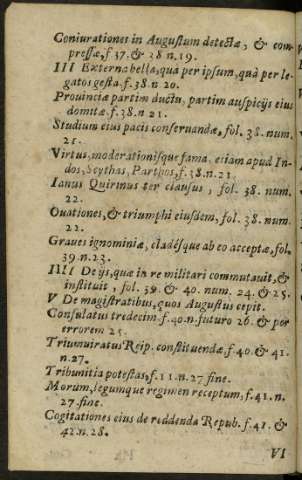 Coniurationes in Augustum detectæ, & com
pressæ, f 37. & 38 n. 19.
III Externa bella, quà per ipsum, quà per le-
gatos gesta. f. 38. n 20.
Prouinciæ partim ductu, partim auspicijs eius
domitæ. f. 38. n 21.
Studium eius pacis conseruandæ, fol. 38. num.
21.
Virtus, moderationisque fama, etiam apud In-
dos, Scythas, Parthos, f. 38. n. 21.
Ianus Quirinus ter clausus, fol. 38. num.
22.
Ouationes, & triumphi eiusdem, fol. 38. num.
22.
Graues ignominiæ, cladésque ab eo acceptæ, fol.
39. n. 23.
IIII De ijs, quæ in re militari commutauit, &
instituit, fol. 39. & 40. num. 24. & 25.
V De magistratibus, quos Augustus cepit.
Consulatus tredecim. f. 40. n. futuro 26. & per
errorem 25.
Triumuiratus Reip. constituendæ f. 40. & 41.
n. 27.
Tribunitia potestas, f. 11. n. 27 fine.
Morum, legumque regimen receptum, f. 41. n.
27. fine.
Cogitationes eius de reddenda Repub. f. 41. &
42. n. 28.
VI